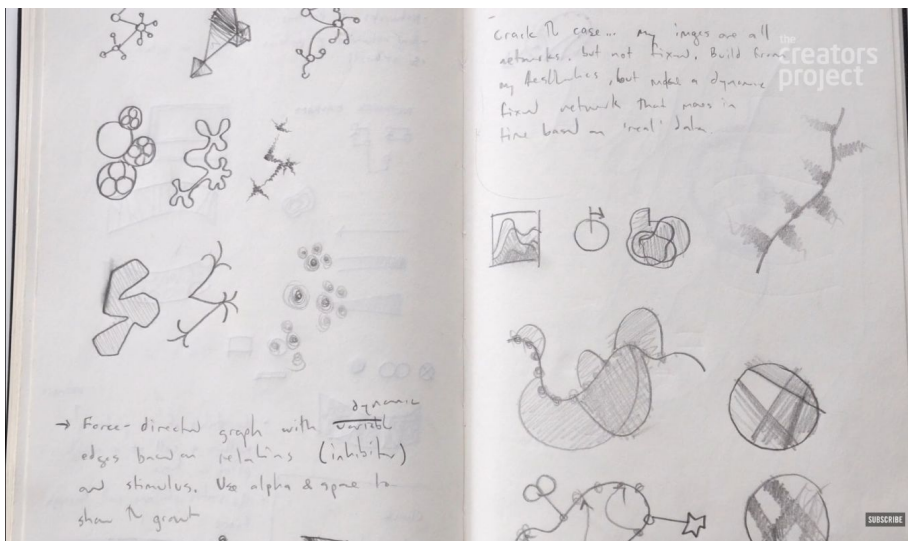 → Force-directed graph with variable dynamic
edges based on relations (inhibitor)
and stimulus. Use alpha & space to
show growth
crack the case... my images are all
networks, but not fixed. Build from
my Aesthetics, but make a dynamic
fixed network that moves in
time based on 'real' data.
the
creators
project
SUBSCRIBE